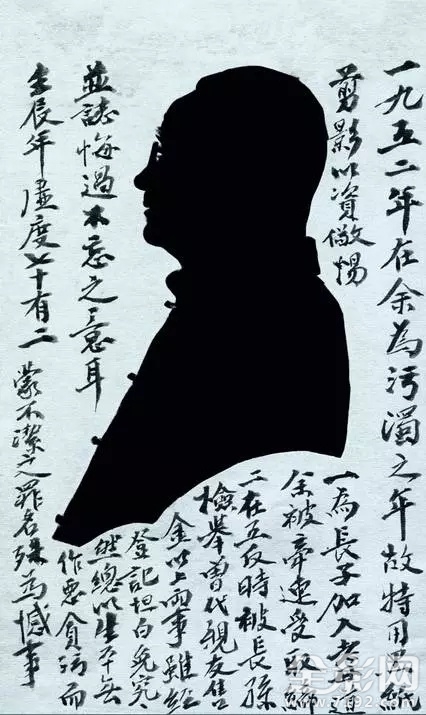 一九五二年在余為污濁之年故特用黑紙
剪影以資儆惕
一為長子加入
余被牽連受取締
二在五反時被長孫
檢舉曾代親友售
金以上兩事雖經
登記坦白免究
然總以生平無
作惡貪污而
蒙不潔之罪名殊為憾事
並誌悔過不忘之意耳
壬辰年虛度七十有二
全影网
7192.com